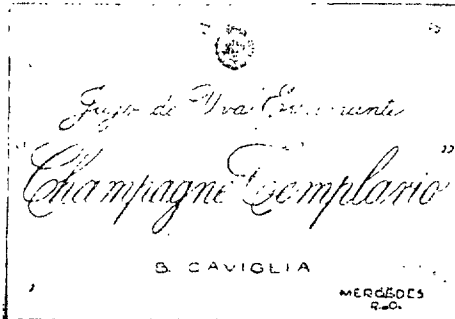 Jugo de Uva Espumante
"Champagne Templario"
B. CAVIGLIA
MERCEDES
R.O.